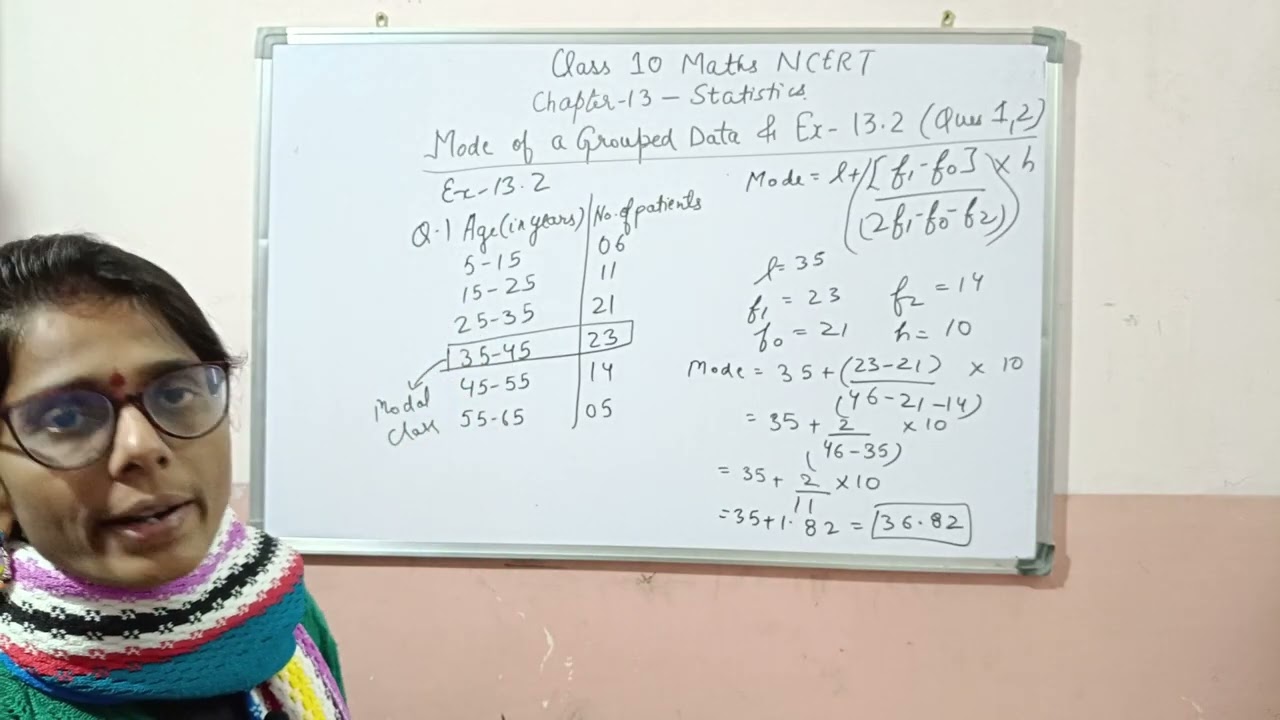 Class 10 Maths NCERT
Chapter-13 - Statistics
Mode of a Grouped Data & Ex- 13.2 (Ques 1,2)
Ex-13.2
Q.1 Age(in years) No. of patients
5-15 06
15-25 11
25-35 21
35-45 23
45-55 14
55-65 05
Modal
Class
Mode = l + ([f₁-f₀] / (2f₁-f₀-f₂)) × h
l = 35
f₁ = 23 f₂ = 14
f₀ = 21 h = 10
Mode = 35 + (23-21) / (46-21-14) × 10
= 35 + 2 / (46-35) × 10
= 35 + 2 / 11 × 10
= 35 + 1.82 = 36.82